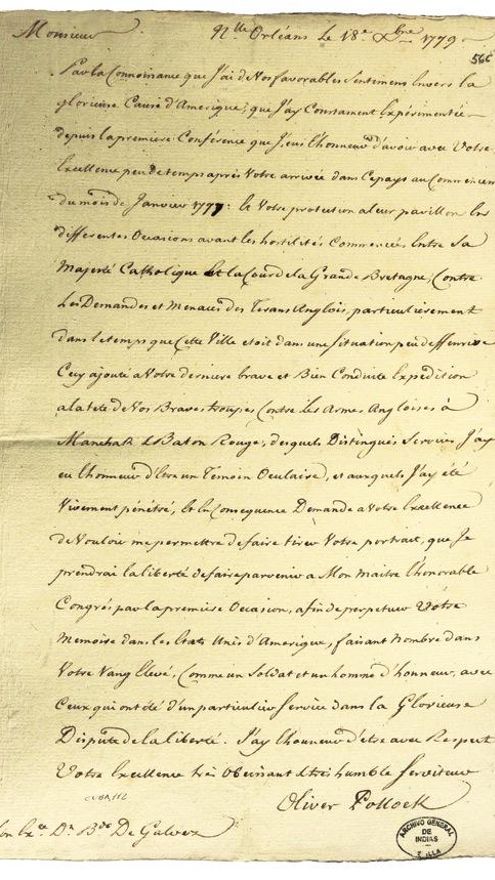 Monsieur
Nlle Orléans Le 18e Xbre 1779
566
Par la Connoisance que J'ai de Nos favorables Sentimens Envers la
glorieuse Cause d'Amerique, que J'ay Constament Expérimentée
depuis la premiere Conférence que J'eus l'honneur d'avoir avec Votre
Excellence peu de temps après Votre arrivée dans Ce pays au Commencem
du mois de Janvier 1777: et Votre protection a leur pavillon En
differentes Occasions avant les hostilités Commencées Entre Sa
Majesté Catholique et la Cour de la Grande Bretagne, Contre
Les Demandes et Menaces des Tirans Anglois, particulierement
dans le temps que Cette Ville etoit dans une Situation peu deffensive
Cecy ajouté a Votre derniere brave et Bien Conduite Expedition
a la tete de Nos Braves troupes Contre les Armes Angloises à
Manchak & Baton Rouge, desquels Distingués Services J'ay
eu l'honneur d'Etre un Temoin Oculaire, et auxquels J'ay été
Vivement pénétré, Et En Consequence Demande a Votre Excellence
de Vouloir me permettre de faire tirer Votre portrait, que Je
prendrai la liberté de faire parvenir a Mon Maitre l'honorable
Congrés par la premiere Occasion, afin de perpetuer Votre
Memoire dans les Etats Unis d'Amerique, faisant Nombre dans
Votre Rang Elevé, Comme un Soldat et un homme d'honneur, avec
Ceux qui ont été d'un particulier Service dans la Glorieuse
Dispute de la liberté. J'ay l'honneur d'etre avec Respect
Votre Excellence très Obeissant & très humble Serviteur
Oliver Pollock
CUBA, 112
Son Exce Dn Bdo De Galvez
ARCHIVO GENERAL
DE
INDIAS
SEVILLA